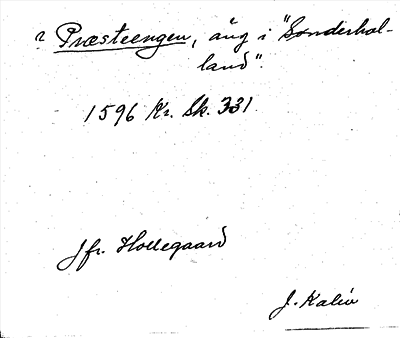 2 Præsteengen, äng i "Sønderhal-
land".
1596 Kr. Sk. 331
Jfr. Hollegaard
J. Kalén